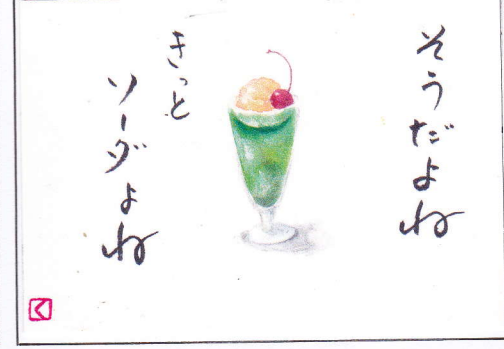 そうだよね
きっと
ソーダよね
く